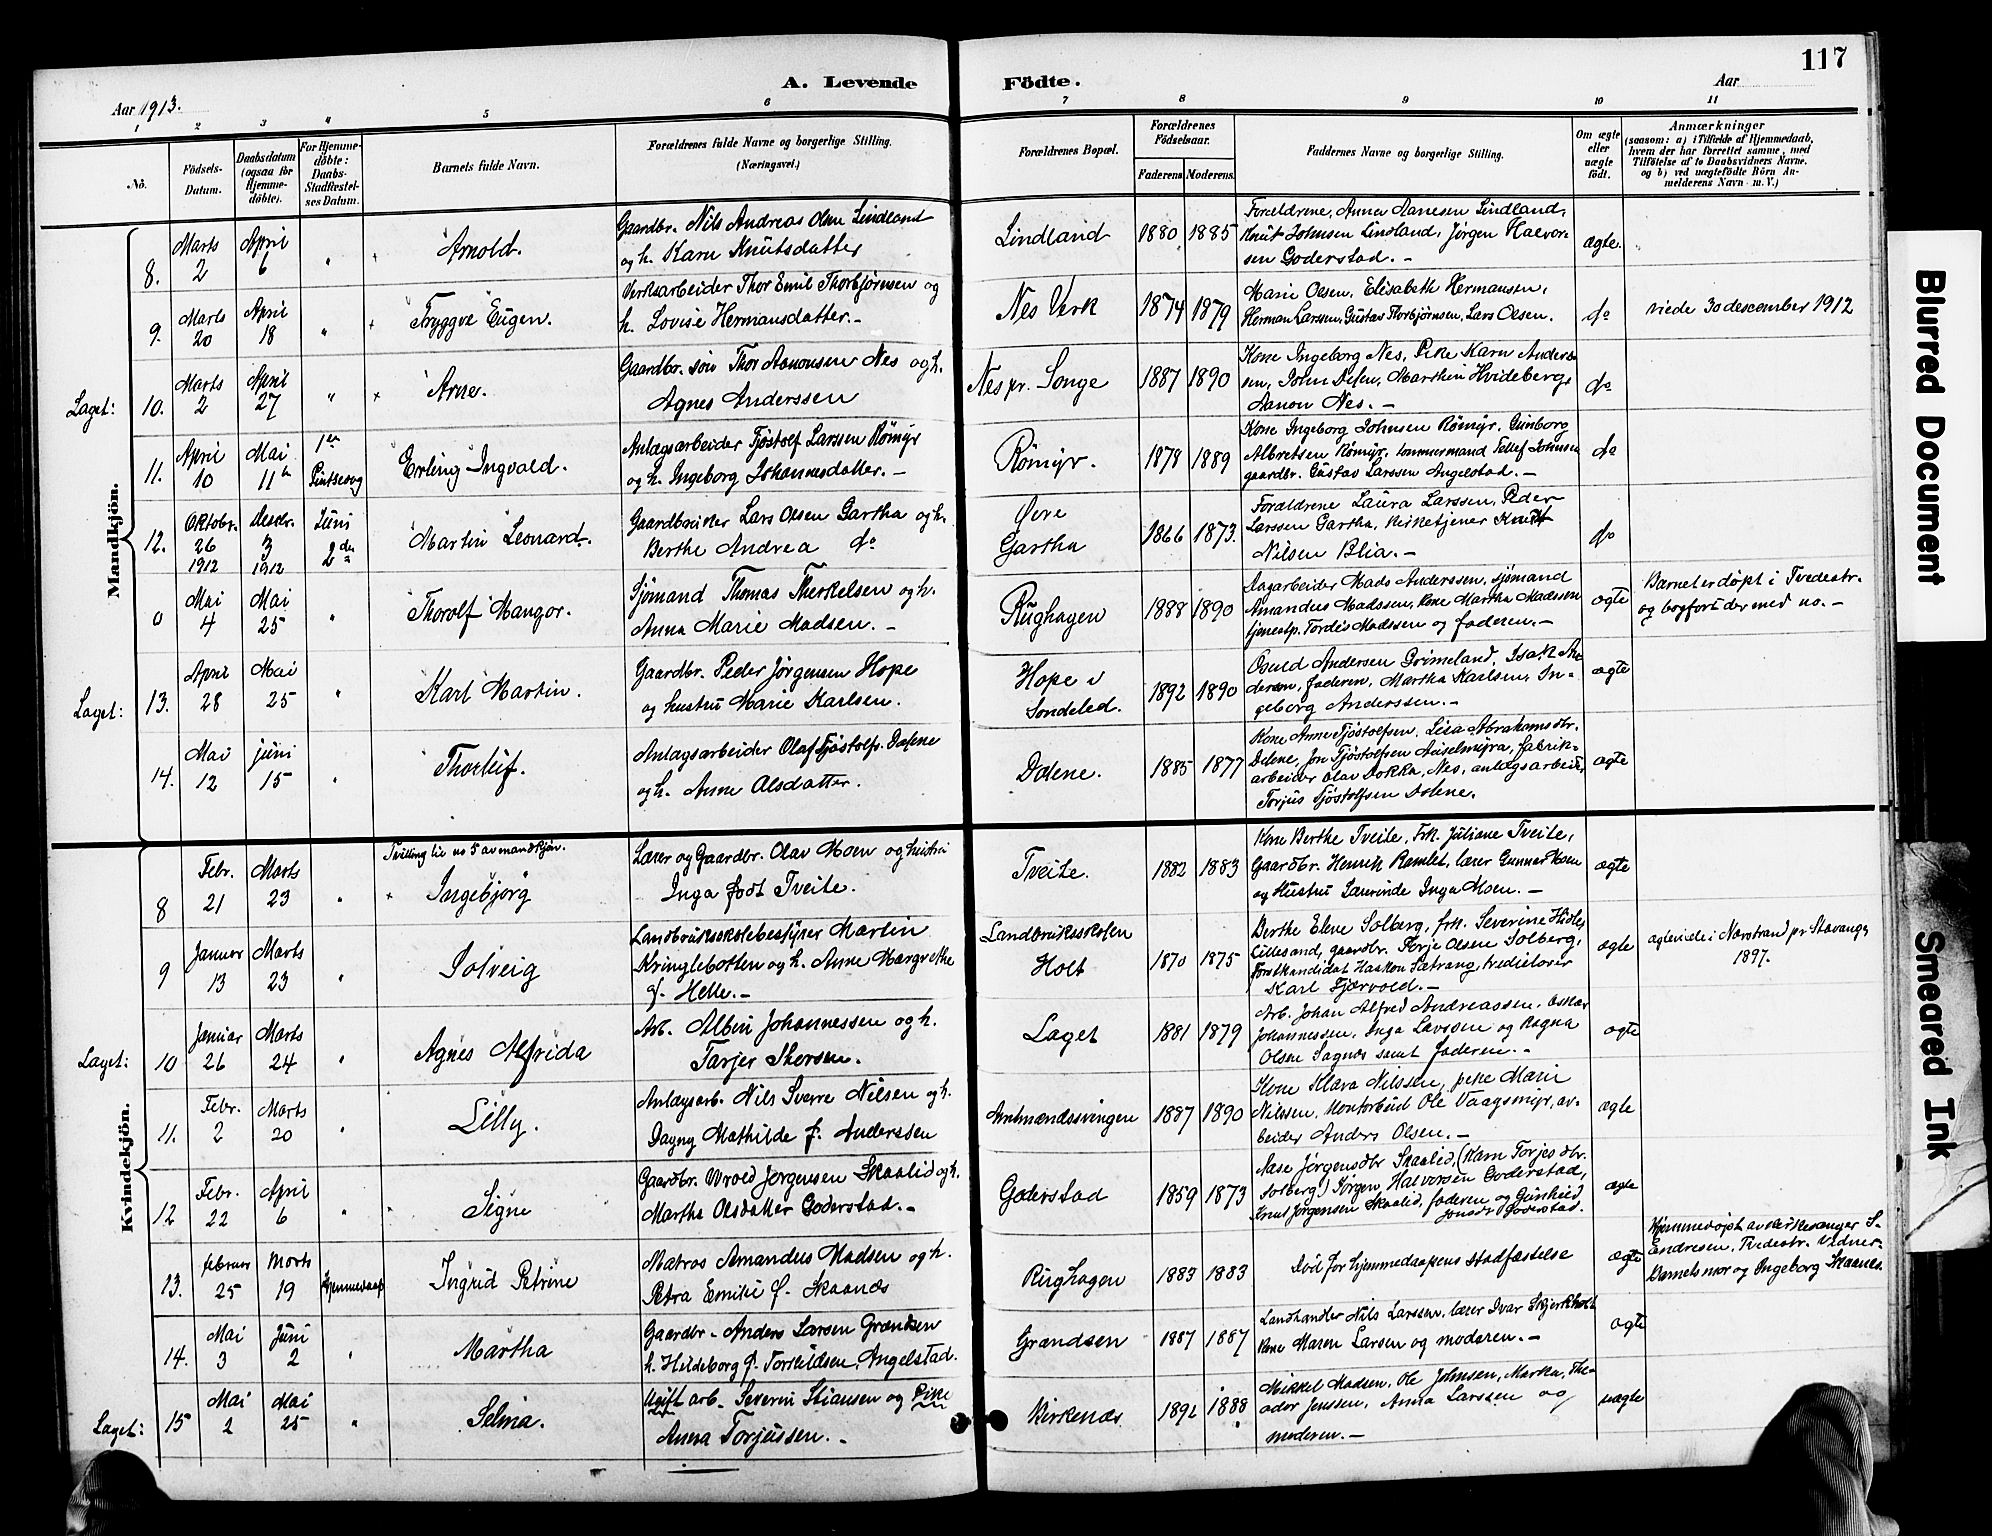 117
A. Levende Födte.
Aar 1913.
Aar
1 2 3 4 5 6 7 8 9 10 11
No.
Födsels-Datum.
Daabsdatum (ogsaa för Hjemmedöbte).
For Hjemmedöbte: Daabs-Stadfæstelses Datum.
Barnets fulde Navn.
Forældrenes fulde Navne og borgerlige Stilling.
(Næringsvei.)
Forældrenes Bopæl.
Forældrenes Födselsaar.
Faderens Moderens
Faddernes Navne og borgerlige Stilling.
Om ægte eller uægte födt.
Anmærkninger
(saasom: a) i Tilfælde af Hjemmedaab,
hvem der har forrettet samme, med
Tilföielse af to Daabsvidners Navne.
og b) ved uægtefödte Börn Anmelderens Navn m. V.)
Mandkjön.
8. Marts 2 April 6 " Arnold.
Gaardbr. Nils Andreas Olsen Lindland
og h. Karn Knutsdatter
Lindland 1880 1885
Forældrene, Anna Aanesen Lindland,
Knut Johnsen Lindland, Jørgen Halvorsen
Goderstad. –
ægte.
9. Marts 20 April 18 " Tryggve Eugen.
Verksarbeider Thor Emil Thorbjørnsen og
h. Lovise Hermansdatter. –
Nes Verk 1874 1879
Marie Olsen, Elisabeth Hermansen,
Herman Larssen, Gustav Thorbjørnsen, Lars Olsen.
do
viede 30 descember 1912
Laget:
10. Marts 2 April 27 " Arne.
Gaardbr. søn Thor Aanonsen Nes og h.
Agnes Anderssen
Nes pr. Songe 1887 1890
Kone Ingeborg Nes, Pike Karn Anderssen,
John Dalen, Marthin Hvideberg,
Aanon Nes. –
do
11. April 10 Mai 11te 1ste Pintsedag Erling Ingvald.
Anlægsarbeider Tjöstolf Larssen Römyr
og h. Ingeborg Johannesdatter. –
Römyr. 1878 1889
Kone Ingeborg Johnsen Römyr, Gunborg
Albretsen Römyr, tømmermand Tellef Johnsen
gaardbr. Gustav Larssen Angelstad. –
do
12. Oktobr. 26 1912 Decbr. 3 1912 Juni 2den Martin Leonard.
Gaardbruker Lars Olsen Gartha og h.
Berthe Andrea do
Øvre Gartha 1866 1873.
Forældrene Laura Larssen, Peder
Larssen Gartha, kirketjener Knut
Nilsen Blia. –
do
0 Mai 4 Mai 25 " Thorolf Mangor.
Sjømand Thomas Therkelsen og h.
Anna Marie Madsen. –
Rughagen 1888 1890
Dagarbeider Mads Anderssen, sjømand
Amandus Madssen, Kone Martha Madssen
tjenestp. Tordis Madssen og faderen. –
ægte
Barnet er døpt i Tvedestr.
og bogført der med no. –
Laget:
13. April 28 Mai 25 " Karl Martin.
Gaardbr. Peder Jørgensen Hope
og hustru Marie Karlsen.
Hope i Søndeled. 1892 1890
Osuld Andersen Grimeland, Isak Andersen,
faderen, Martha Karlsen, Ingeborg
Anderssen. –
ægte
14. Mai 12 juni 15 " Thorleif.
Anlægsarbeider Olaf Tjöstolfs. Dalene
og h. Anne Alsdatter.
Dalene. 1885 1877
Kone Anne Tjöstolfsen, Lisa Abrahamsdtr.
Dalene, Jon Tjöstolfsen Heiselmyra, fabrikarbeider
Olav Dokka, Nes, anlægsarbeider
Torjus Tjöstolfsen Dalene.
ægte
Kvindekjön.
8 Febr. 21 Marts 23 "
Tvilling til no 5 av mandkjøn.
Ingebjørg
Lærer og Gaardbr. Olav Moen og hustru
Inga født Tveite.
Tveite. 1882 1883
Kone Berthe Tveite, Frk. Juliane Tveite,
Gaardbr. Henrik Ramlet, lærer Gunnar Moen
og Hustru Lærerinde Inga Moen. –
ægte
9 Januar 13 Marts 23 Solveig
Landbruksskolebestyrer Martin
Kringlebotten og h. Anne Margrethe
f. Helle. –
Landbruksskolen Holt 1870 1875
Berthe Elene Solberg, frk. Severine Hidle
Lillesand, gaardbr. Terje Olsen Solberg,
Forstkandidat Haakon Sætrang,
Karl Fjærvold. –
ægte
ægteviede i Nærstrand pr Stavanger
1897.
Laget:
10 Januar 26 Marts 24 " Agnes Alfrida
Arb. Albin Johannessen og h.
Tarjer Thorsen.
Laget 1881 1879
Arb. Johan Alfred Andreassen, Oskar
Johannessen, Inga Larssen og Ragna
Olsen Sagnes samt faderen. –
ægte
11. Febr. 2 Marts 20 " Lilly.
Anlægsarb. Nils Sverre Nilsen og h.
Dagny Mathilde f. Anderssen
Amtmandssvingen 1887 1890
Kone Klara Nilssen, pike Marie
Nilssen, Kontorbud Ole Vaagsmyr, arbeider
Anders Olsen. –
ægte
12 Febr. 22 April 6 " Signe
Gaardbr. Wrold Jørgensen Skaalid og h.
Martha Olsdatter Goderstad. –
Goderstad 1859 1873
Aase Jørgensdtr Skaalid, (Karn Torjesdtr.
Solberg) Jørgen Halversen Goderstad,
Knut Jørgensen Skaalid, faderen og Gunhild
Jonsdtr Goderstad.
ægte
13. februar 25 Marts 19 Hjemmedaap Ingrid Petrine
Matros Amandus Madsen og h.
Petra Emilie f. Skaanæs
Rughagen 1883 1883
Død før hjemmedaapens stadfæstelse
ægte
Hjemmedøpt av kirkesanger S.
Endresen, Tvedestr. Vidner:
Barnets mor og Ingeborg Skaanes.
14. Mai 3 Juni 2 " Martha
Gaardbr. – Anders Larsen Grændsen
h. Hildeborg f. Torkildsen, Angelstad.
Grændsen 1887 1887
Landhandler Nils Larssen, lærer Ivar Skjerkholt
Kone Maren Larsen og moderen. –
ægte
Laget:
15 Mai 2 Mai 25 " Selma.
Ugift arb. Severin Stiansen og Pike
Anna Torjussen. –
Birkenæs 1892 1888
Mikkel Madsen, Ole Johnsen, Marka, Theodor
Jenssen, Anna Larssen og
moderen. –
uægte
Blurred Document
Smeared Ink